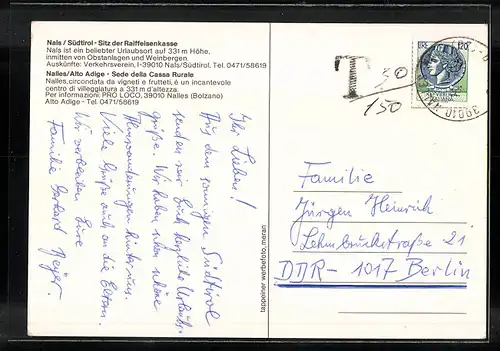 Nals / Südtirol - Sitz der Raiffeisenkasse
Nals ist ein beliebter Urlaubsort auf 331 m Höhe,
inmitten von Obstanlagen und Weinbergen.
Auskünfte: Verkehrsverein, I-39010 Nals/Südtirol. Tel. 0471/58619
Nalles/Alto Adige - Sede della Cassa Rurale
Nalles, circondata da vigneti e frutteti, è un incantevole
centro di villeggiatura a 331 m d'altezza.
Per informazioni: PRO LOCO, 39010 Nalles (Bolzano)
Alto Adige - Tel. 0471/58619
Ihr Lieben!
Aus dem sonnigen Südtirol
senden wir Euch herzliche Urlaubs-
grüße. Wir haben schon schöne
Wanderungen hinter uns.
Viele Grüße auch an die Eltern.
Wir verbleiben Eure
Familie Gerhard
tappeiner werbefoto, meran
T 30
150
LIRE 120
ITALIANA
39010
Familie
Jürgen Heinrich
Lehmbruckstraße 21
DDR - 1017 Berlin